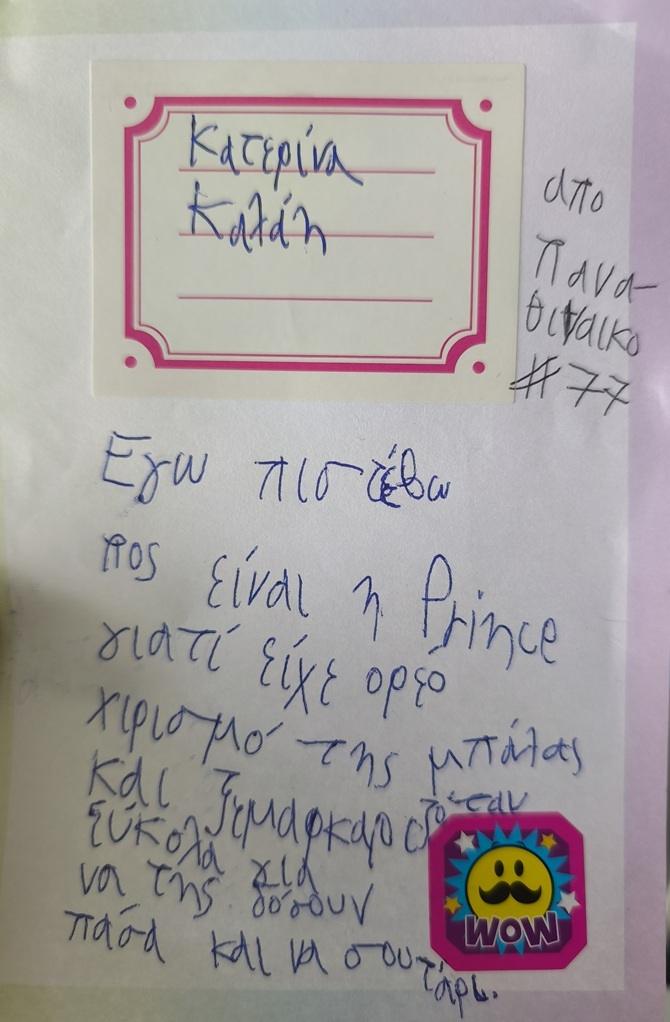 Κατερίνα
Καλάη
απο
Πανα-
θιναικο
#77
Εγω πιστέβω
πος είναι η Prince
γιατί είχε ορέο
χιρισμό της μπάλας
και ξεμαρκαρεζόταν
εύκολα για
να της δόσουν
πάσα και να σουτάρι.
WOW